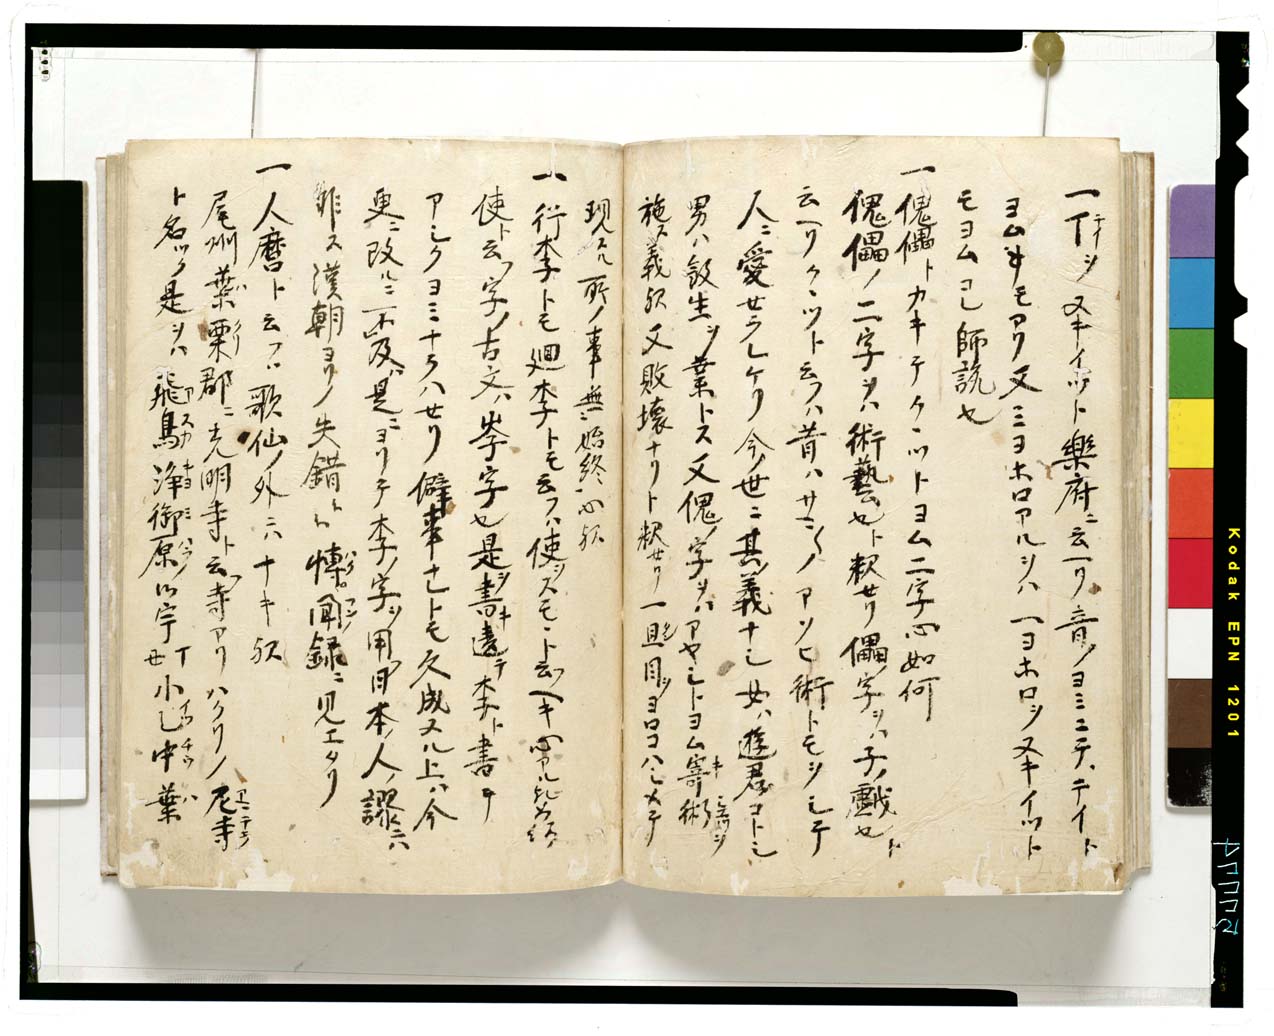 一丁ヲシ又キイット樂府ニ云ヘリ音ノヨミニテ、テイト
ヨム事モアリ又ミヨホロアルヲハ一ヨホロシヌキイット
モヨムヘシ師説也
一傀儡トカキテクヽツトヨム二字心如何
傀儡ノ二字ヲハ術藝也ト釈セリ儡字ヲハ子ノ戯也ト
云ヘリクヽツト云フハ昔ハサマ〱ノアソヒ術トモヲシテ
人ニ愛セラレケリ今ノ世ニ其義ナシ女ハ遊君コトシ
男ハ殺生ヲ業トス又傀ノ字ヲハアヤシトヨム寄術
施ス義歟又敗壞ナリト釈セリ一旦目ヲヨロコハシメテ
現スル所ノ事無始終心歟
一行李トモ廻李トモ云フハ使ヲスモヽト云ヘキ心アル
使ト云フ字ノ古文ハ岺字也是ヲ書違テ李ト書テ
アシクヨミナラハセリ僻事ナレトモ久成ヌル上ハ今
更ニ改ルニ不及是ニヨリテ李ノ字ヲ用日本ノ人ノ謬ニハ
非ス漢朝ヨリノ失錯
博聞録ニ見エタリ
一人麿ト云フハ歌仙ノ外ニハナキ歟
尾州葉栗郡ニ光明寺ト云フ寺アリハクリノ尼寺
ト名ツク是ヲハ飛鳥淨御原御宇丁丑小乙中葉
アスカキヨミハラ
アマテラ
Kodak EPN 1201